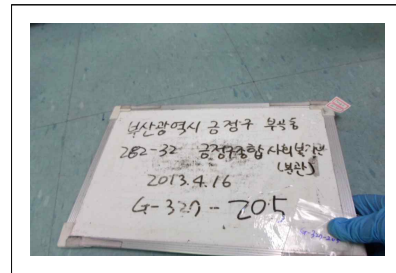 부산광역시 금정구 부곡동
282-32 금정구종합사회복지관
(본관)
2013.4.16
G-327-205